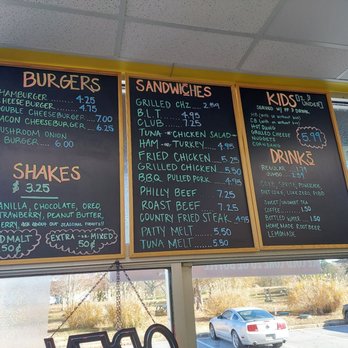 BURGERS
HAMBURGER 4.25
CHEESEBURGER 4.75
DOUBLE CHEESEBURGER 7.00
BACON CHEESEBURGER 6.25
MUSHROOM ONION
BURGER 6.00
SHAKES
$ 3.25
VANILLA, CHOCOLATE, OREO,
STRAWBERRY, PEANUT BUTTER,
ADD MALT 50¢
EXTRA MIXED 50¢
SANDWICHES
GRILLED CHZ
B.L.T 4.95
CLUB 7.25
TUNA OR CHICKEN SALAD
HAM OR TURKEY 4.95
FRIED CHICKEN 5.25
GRILLED CHICKEN 5.50
BBQ PULLED PORK 4.95
PHILLY BEEF 7.25
ROAST BEEF 7.25
COUNTRY FRIED STEAK 4.95
PATTY MELT 5.50
TUNA MELT 5.50
KIDS (12 & UNDER)
HOT DOG
GRILLED CHEESE
NUGGETS
CORN DOG
5.99
DRINKS
REGULAR
LARGE
SWEET/UNSWEET TEA
COFFEE
BOTTLED WATER
HOMEMADE ROOT BEER
LEMONADE